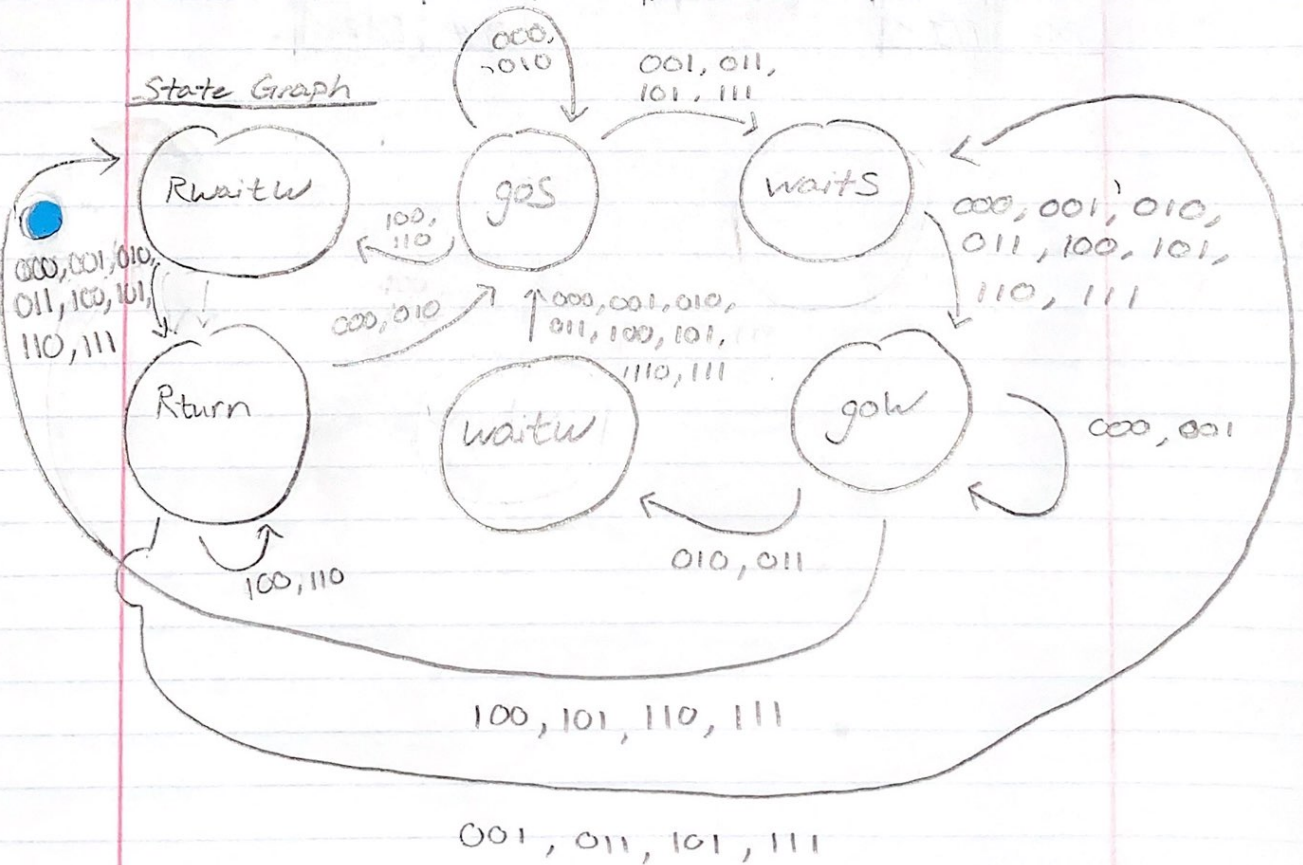 000,
010
001, 011,
101, 111
State Graph
RwaitW
goS
waitS
100,
110
000, 001, 010,
011, 100, 101,
110, 111
000,001,010,
011,100,101,
110,111
000,010
000,001,010,
011,100,101,
1110,111
Rturn
waitW
goW
000, 001
010, 011
100,110
100, 101, 110, 111
001, 011, 101, 111